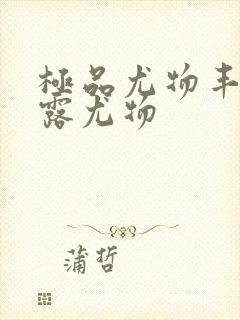 極品尤物丰
露尤物
蒲哲